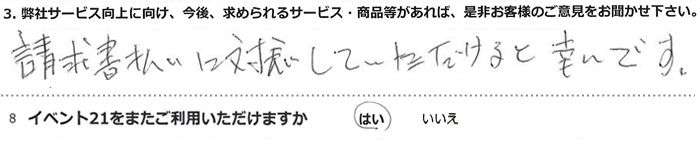 3. 弊社サービス向上に向け、今後、求められるサービス・商品等があれば、是非お客様のご意見をお聞かせ下さい。
請求書払いに対応していただけると幸いです。
8 イベント21をまたご利用いただけますか はい いいえ